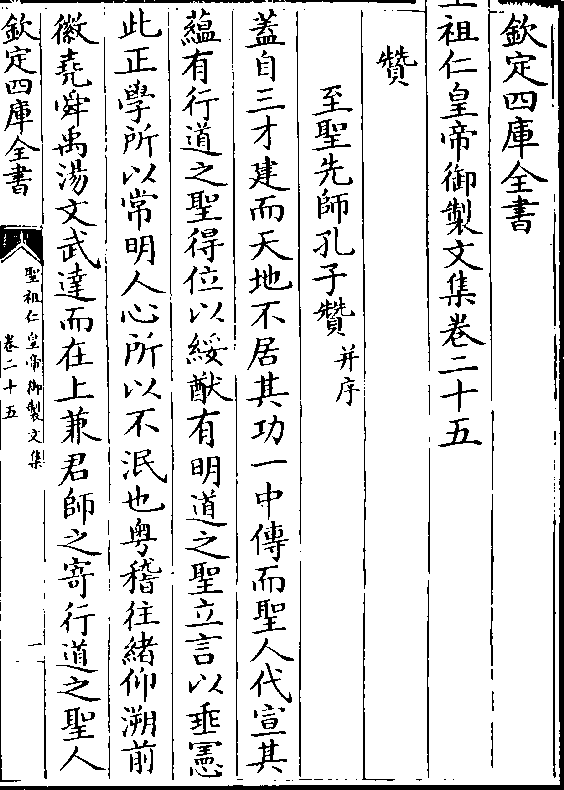 欽定四庫全書
聖祖仁皇帝御製文集卷二十五
贊
至聖先師孔子贊并序
蓋自三才建而天地不居其功一中傳而聖人代宣其
蘊有行道之聖得位以綏猷有明道之聖立言以垂憲
此正學所以常明人心所以不泯也粤稽往緒仰溯前
徽堯舜禹湯文武達而在上兼君師之寄行道之聖人
欽定四庫全書
聖祖仁皇帝御製文集
卷二十五
一